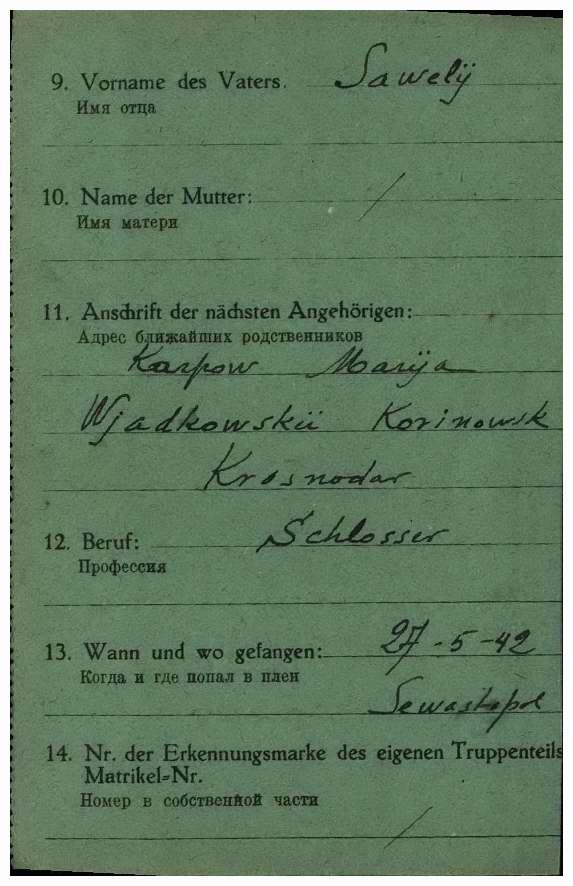 9. Vorname des Vaters. Sawelÿ
Имя отца
10. Name der Mutter: /
Имя матери
11. Anschrift der nächsten Angehörigen:
Адрес ближайших родственников
Karpow Marija
Wjadkowskii Korinowsk
Krosnodar
12. Beruf: Schlosser
Профессия
13. Wann und wo gefangen: 27-5-42
Когда и где попал в плен
Sewastopol
14. Nr. der Erkennungsmarke des eigenen Truppenteils
Matrikel-Nr.
Номер в собственной части
/